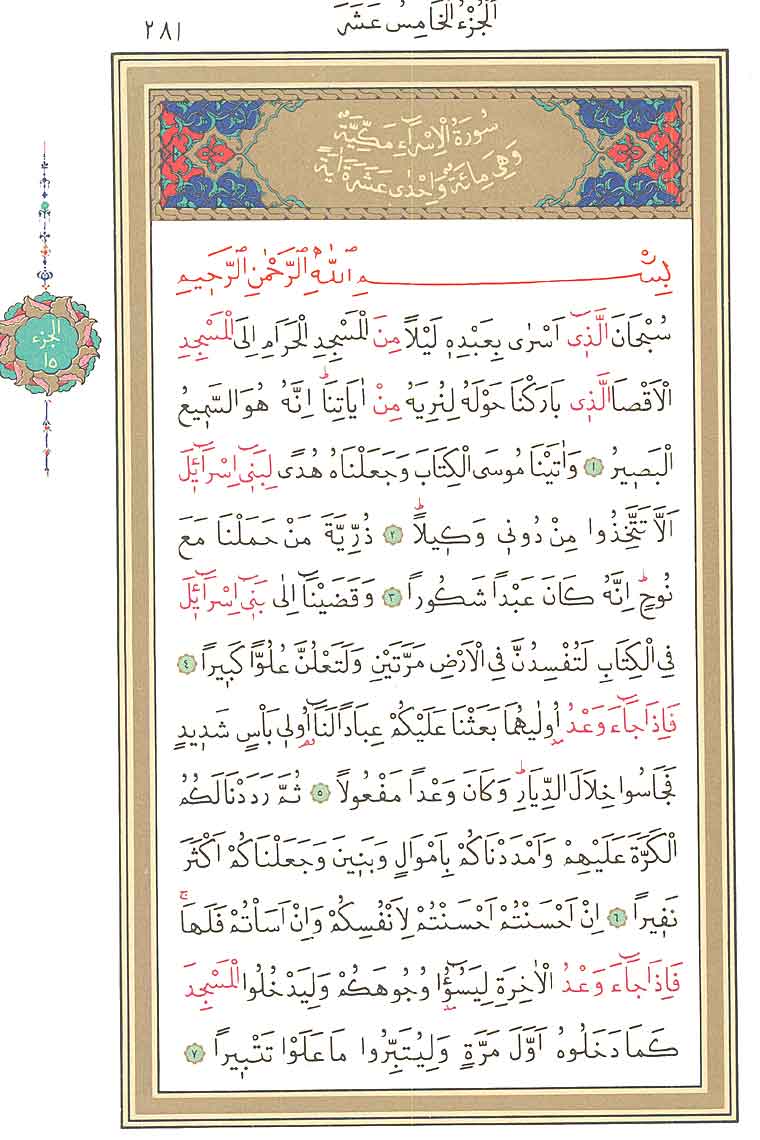 اَلْجُزْءُ الْخَامِسُ عَشَرَ
٢٨١
سُورَةُ الْاِسْرَٓاءِ مَكِّيَّةٌ
وَهِيَ مِائَةٌ وَاِحْدٰى عَشْرَةَ اٰيَةً
بِسْمِ اللّٰهِ الرَّحْمٰنِ الرَّحِيمِ
سُبْحَانَ الَّذ۪ٓي اَسْرٰى بِعَبْدِه۪ لَيْلًا مِنَ الْمَسْجِدِ الْحَرَامِ اِلَى الْمَسْجِدِ
الجزء
١٥
الْاَقْصَا الَّذ۪ي بَارَكْنَا حَوْلَهُ لِنُرِيَهُ مِنْ اٰيَاتِنَاۜ اِنَّهُ هُوَ السَّم۪يعُ
الْبَص۪يرُ ١ وَاٰتَيْنَا مُوسَى الْكِتَابَ وَجَعَلْنَاهُ هُدًى لِبَن۪ٓي اِسْرَٓائ۪لَ
اَلَّا تَتَّخِذُوا مِنْ دُون۪ي وَك۪يلًاۜ ٢ ذُرِّيَّةَ مَنْ حَمَلْنَا مَعَ
نُوحٍۜ اِنَّهُ كَانَ عَبْدًا شَكُورًا ٣ وَقَضَيْنَٓا اِلٰى بَن۪ٓي اِسْرَٓائ۪لَ
فِي الْكِتَابِ لَتُفْسِدُنَّ فِي الْاَرْضِ مَرَّتَيْنِ وَلَتَعْلُنَّ عُلُوًّا كَب۪يرًا ٤
فَاِذَا جَٓاءَ وَعْدُ اُو۫لٰيهُمَا بَعَثْنَا عَلَيْكُمْ عِبَادًا لَنَٓا اُو۬ل۪ي بَأْسٍ شَد۪يدٍ
فَجَاسُوا خِلَالَ الدِّيَارِۜ وَكَانَ وَعْدًا مَفْعُولًا ٥ ثُمَّ رَدَدْنَا لَكُمُ
الْكَرَّةَ عَلَيْهِمْ وَاَمْدَدْنَاكُمْ بِاَمْوَالٍ وَبَن۪ينَ وَجَعَلْنَاكُمْ اَكْثَرَ
نَف۪يرًا ٦ اِنْ اَحْسَنْتُمْ اَحْسَنْتُمْ لِاَنْفُسِكُمْ وَاِنْ اَسَأْتُمْ فَلَهَاۚ
فَاِذَا جَٓاءَ وَعْدُ الْاٰخِرَةِ لِيَسُٓؤُ۫ا وُجُوهَكُمْ وَلِيَدْخُلُوا الْمَسْجِدَ
كَمَا دَخَلُوهُ اَوَّلَ مَرَّةٍ وَلِيُتَبِّرُوا مَا عَلَوْا تَتْب۪يرًا ٧